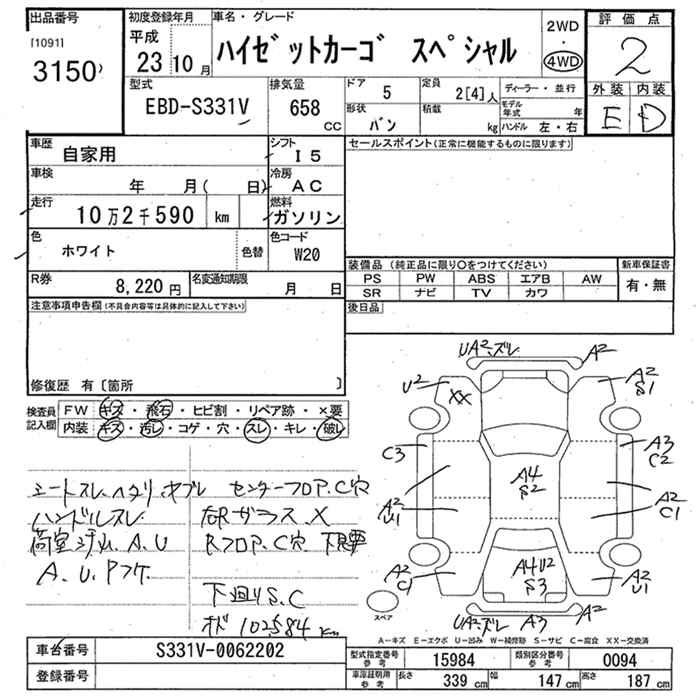 出品番号
[1091]
3150
初度登録年月
平成
23年10月
車名・グレード
ハイゼットカーゴ スペシャル
2WD
・
4WD
評価点
2
外装 内装
E D
型式
EBD-S331V
排気量
658 CC
ドア 5
定員 2[4]人
形状 バン
積載 kg
ディーラー・並行
モデル年式 年
ハンドル 左・右
車歴 自家用
シフト I5
車検 年 月( 日)
冷房 AC
走行 10万2千590 km
燃料 ガソリン
色 ホワイト
色替
色コード W20
R券 8,220円
名変通知期限 月 日
セールスポイント(正常に機能するものに限ります)
装備品 (純正品に限り○をつけてください)
PS PW ABS エアB AW
SR ナビ TV カワ
新車保証書
有・無
後日品
注意事項申告欄(不具合内容等は具体的に記入して下さい)
修復歴 有〔箇所 〕
検査員記入欄
FW キズ・飛石・ヒビ割・リペア跡・×要
内装 キズ・汚レ・コゲ・穴・スレ・キレ・破レ
シートスレ、ヘタリ、ヤブレ センターフロア、C穴
ハンドルスレ 右Rガラス X
荷室汚れ、A、U RフロアC穴
A、U、Pツケ
下廻りS、C
オド 102584km
UA2、ズレ A2
U2 XX A2 S1
C3 A3 C2
A4 S2
A2 U1 A2 C1
A2 C1 A4U2 S3 A2 U1
UA2、ズレ A3 A2
スペア
A-キズ E-エクボ U-凹み W-補修跡 S-サビ C-腐食 XX-交換済
車台番号 S331V-0062202
登録番号
型式指定番号 参考 15984
類別区分番号 参考 0094
車庫証明用 参考 長さ 339cm 幅 147cm 高さ 187cm